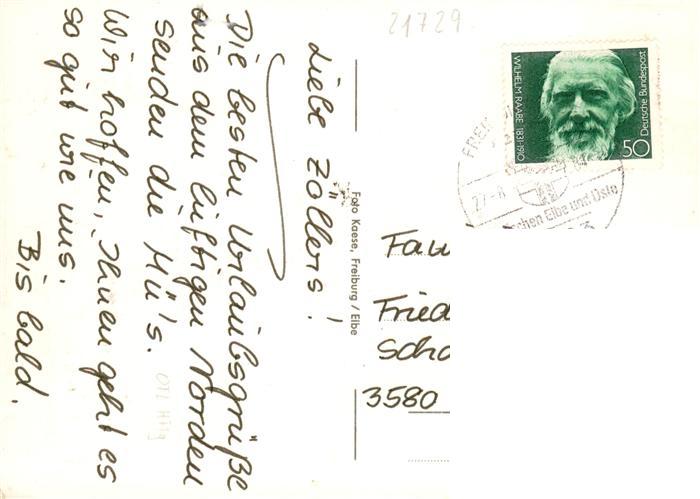 Liebe Zöllers!
Die besten Urlaubsgrüße
aus dem luftigen Norden
senden die Mü's.
Wir hoffen, Ihnen geht es
so gut wie uns.
Bis bald.
Foto Kaese, Freiburg / Elbe
21729
WILHELM RAABE 1831-1910
Deutsche Bundespost
50
FREI
27.-8
chen Elbe und Oste
Fam
Fried
Scho
3580